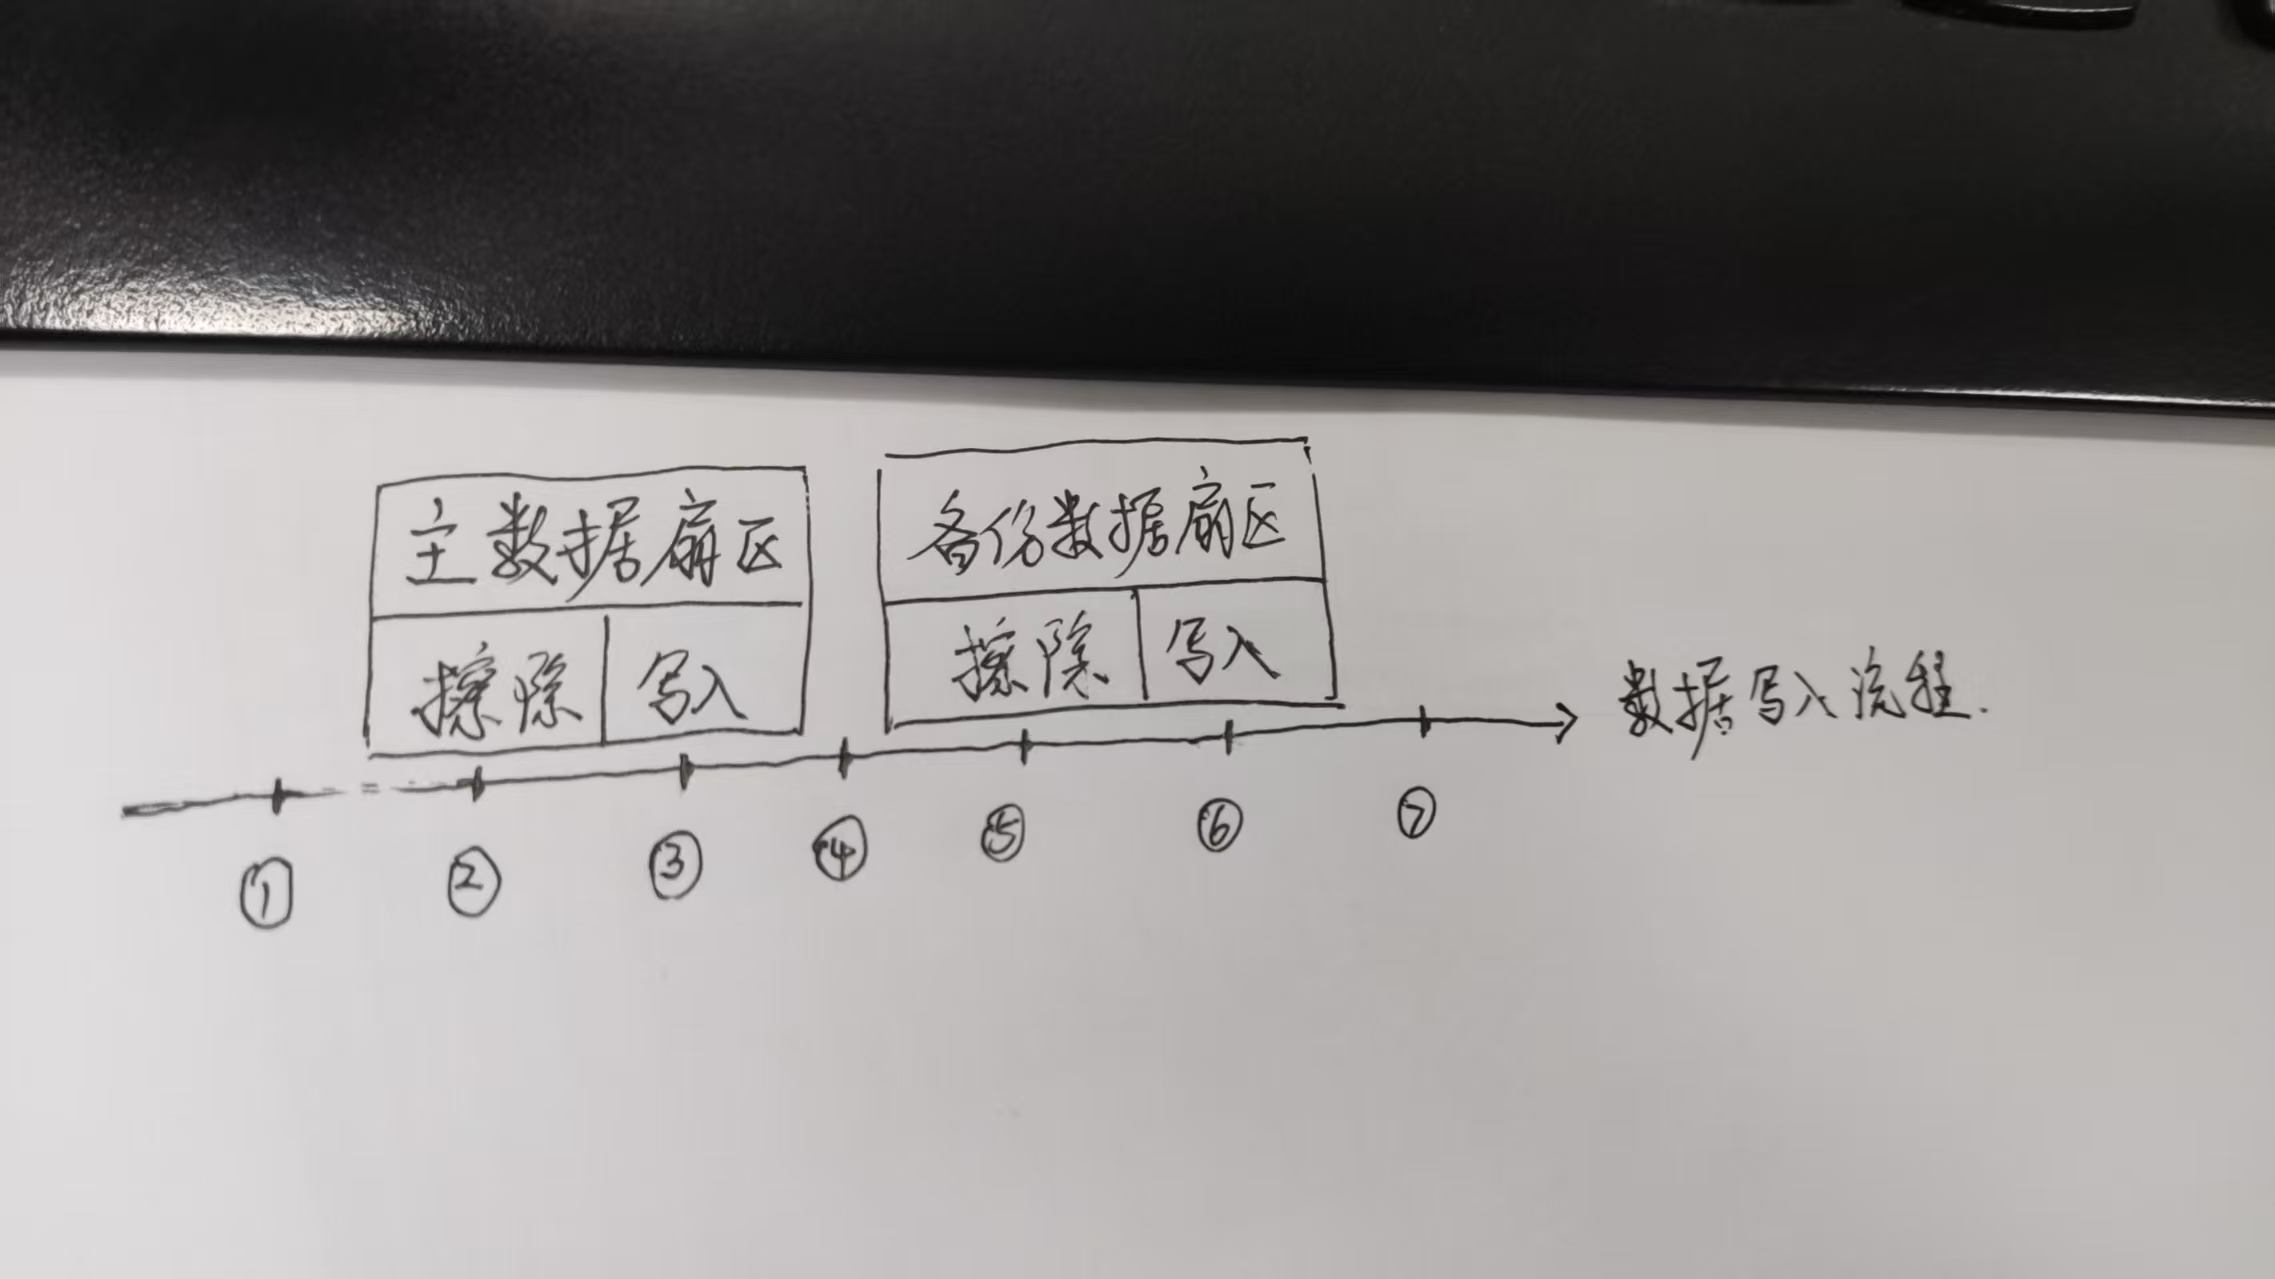 主数据扇区
擦除 写入
备份数据扇区
擦除 写入
数据写入流程.
① ② ③ ④ ⑤ ⑥ ⑦